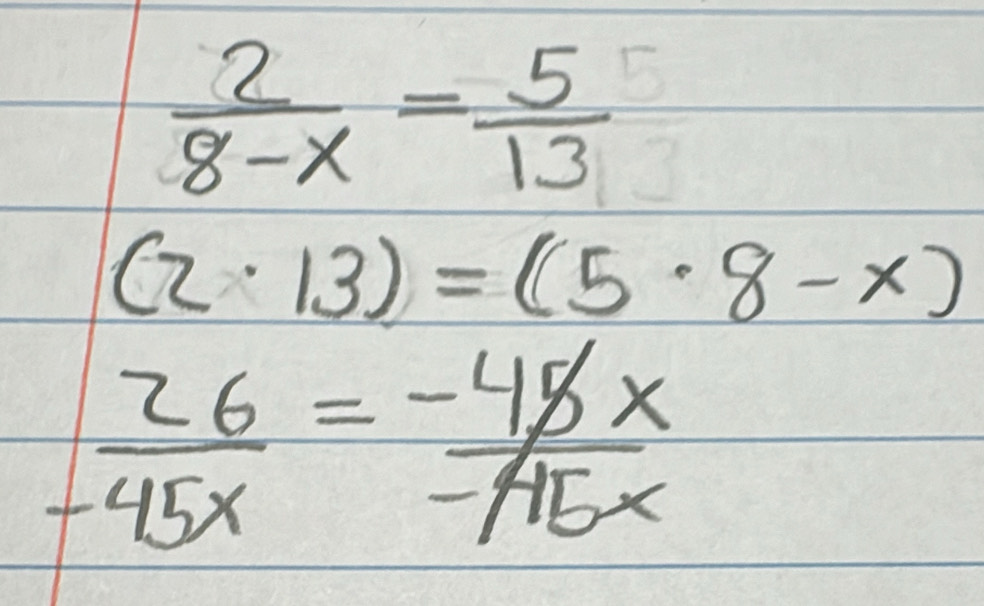 2/(8-x) = 5/13
(2·13)=((5·8-x)
26/-45x = -45x/-45x